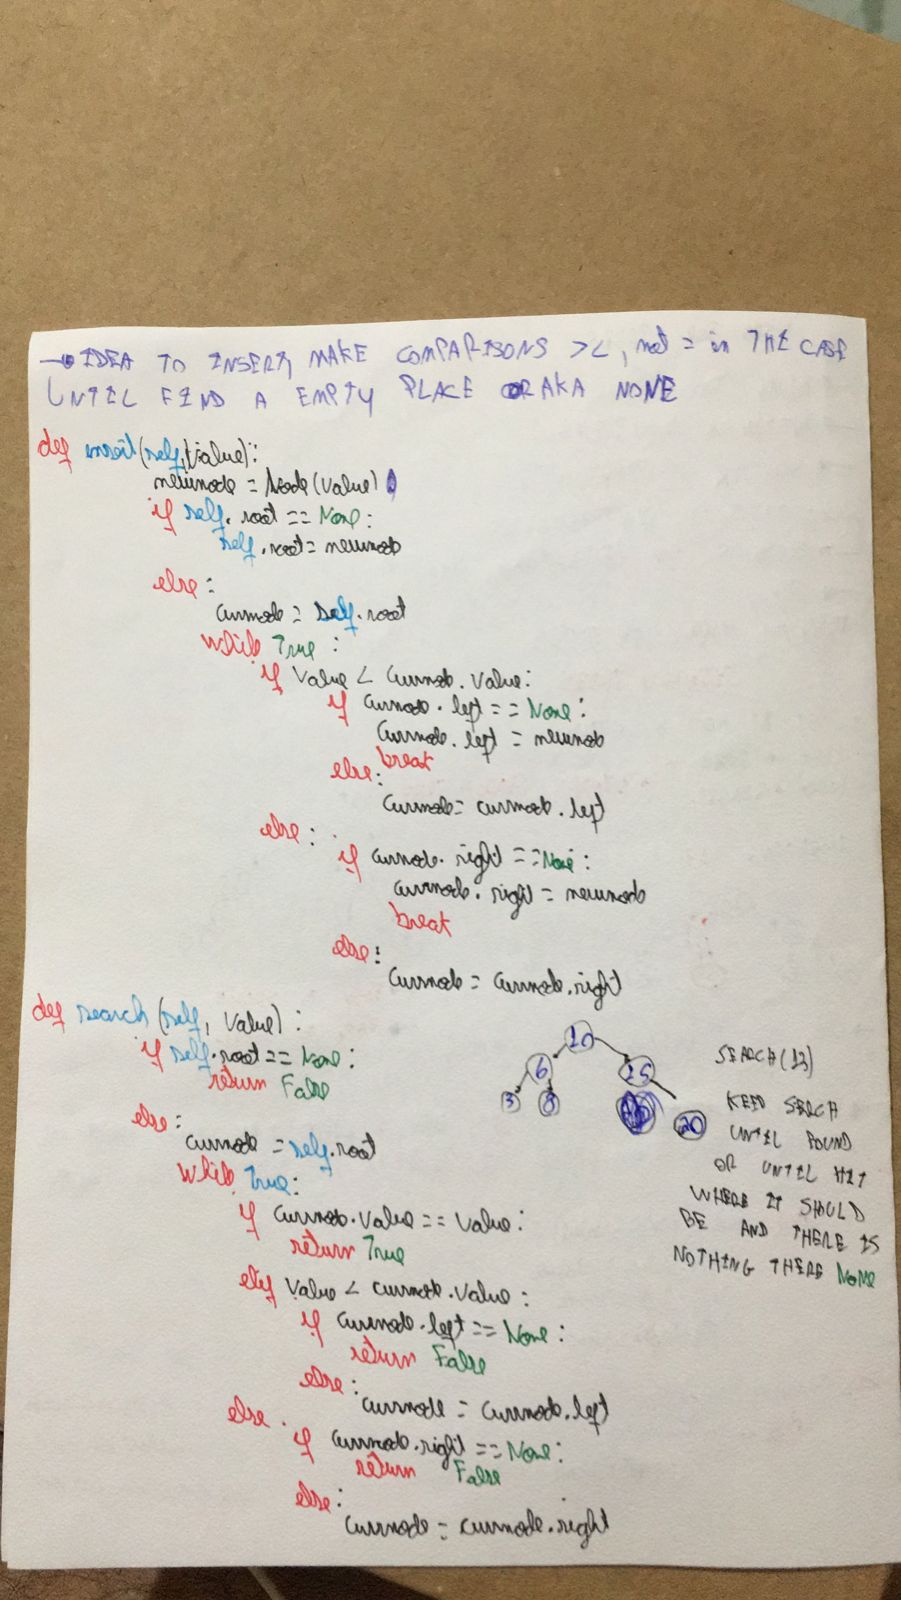 → IDEA TO INSERT, MAKE COMPARISONS ><, not = in THE CASE
UNTIL FIND A EMPTY PLACE OR AKA NONE
def insert(self, value):
newnode = Node(value)
if self.root == None:
self.root = newnode
else:
currnode = self.root
while True:
if value < currnode.value:
if currnode.left == None:
currnode.left = newnode
break
else:
currnode = currnode.left
else:
if currnode.right == None:
currnode.right = newnode
break
else:
currnode = currnode.right
def search(self, value):
if self.root == None:
return False
else:
currnode = self.root
while True:
if currnode.value == value:
return True
elif value < currnode.value:
if currnode.left == None:
return False
else:
currnode = currnode.left
else:
if currnode.right == None:
return False
else:
currnode = currnode.right
10
6 15
3 8 20
SEARCH(13)
KEEP SERCH
UNTIL FOUND
OR UNTIL HIT
WHERE IT SHOULD
BE AND THERE IS
NOTHING THERE NONE